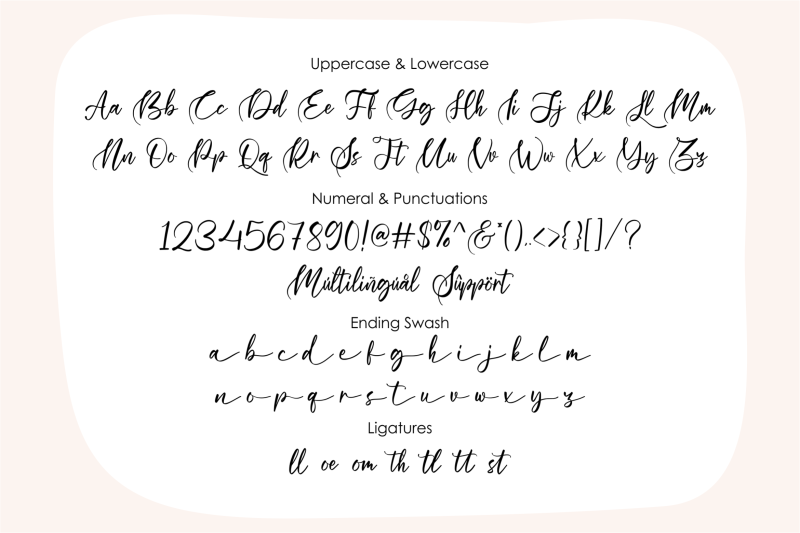 Uppercase & Lowercase
Aa Bb Cc Dd Ee Ff Gg Hh Ii Jj Kk Ll Mm
Nn Oo Pp Qq Rr Ss Tt Uu Vv Ww Xx Yy Zz
Numeral & Punctuations
1234567890!@#$%^&*(),.<>{}[]/?
Múltilíñgúål Sûppört
Ending Swash
a b c d e f g h i j k l m
n o p q r s t u v w x y z
Ligatures
ll oe om th tl tt st